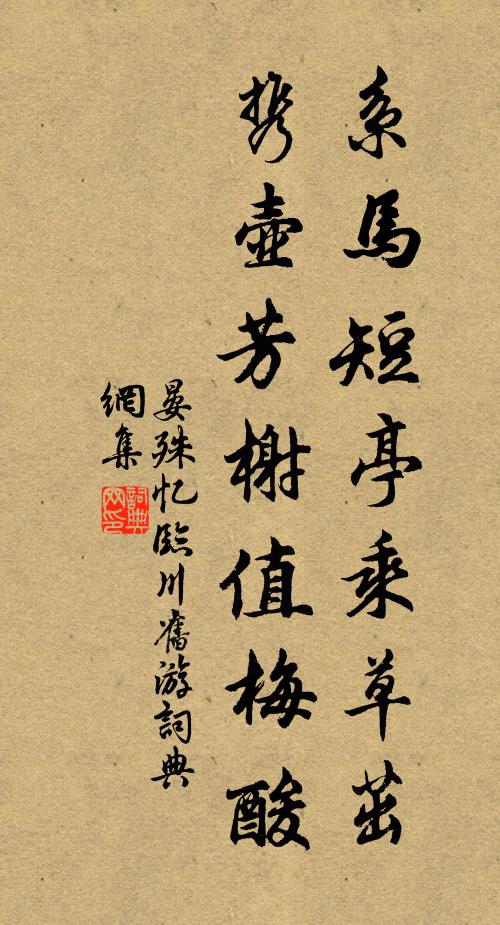 系馬短亭乘草茁
携壺芳榭值梅酸
晏殊忆臨川舊游詞典
網集
詞典
网印